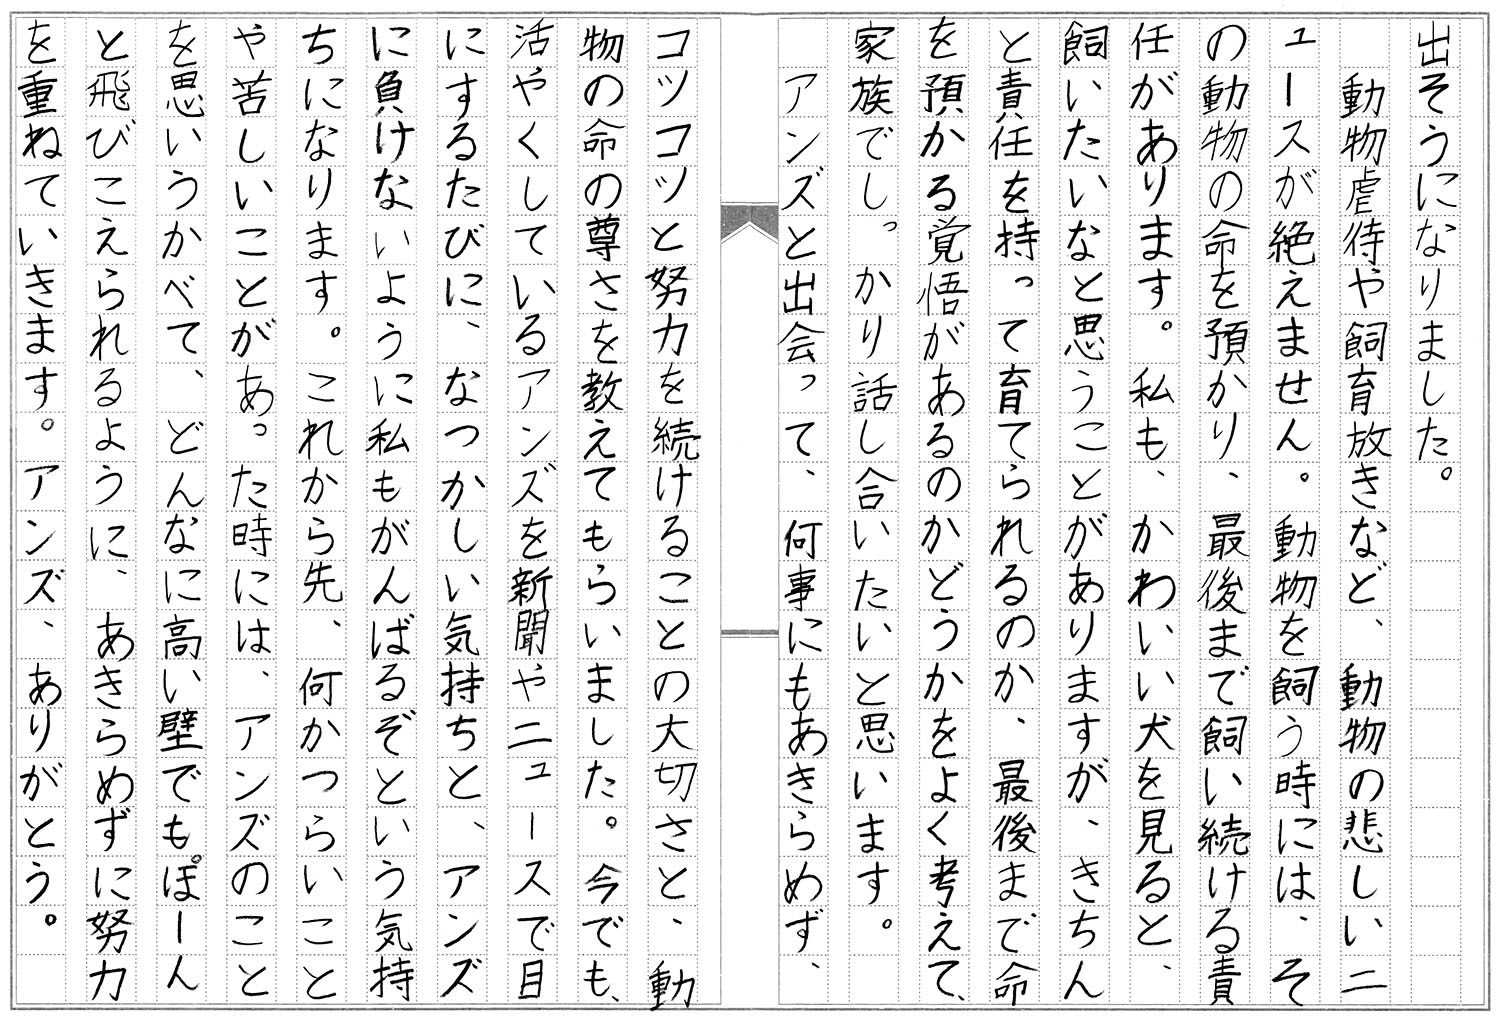 出そうになりました。
動物虐待や飼育放きなど、動物の悲しいニ
ュースが絶えません。動物を飼う時には、そ
の動物の命を預かり、最後まで飼い続ける責
任があります。私も、かわいい犬を見ると、
飼いたいなと思うことがありますが、きちん
と責任を持って育てられるのか、最後まで命
を預かる覚悟があるのかどうかをよく考えて、
家族でしっかり話し合いたいと思います。
アンズと出会って、何事にもあきらめず、
コツコツと努力を続けることの大切さと、動
物の命の尊さを教えてもらいました。今でも、
活やくしているアンズを新聞やニュースで目
にするたびに、なつかしい気持ちと、アンズ
に負けないように私もがんばるぞという気持
ちになります。これから先、何かつらいこと
や苦しいことがあった時には、アンズのこと
を思いうかべて、どんなに高い壁でもぽーん
と飛びこえられるように、あきらめずに努力
を重ねていきます。アンズ、ありがとう。